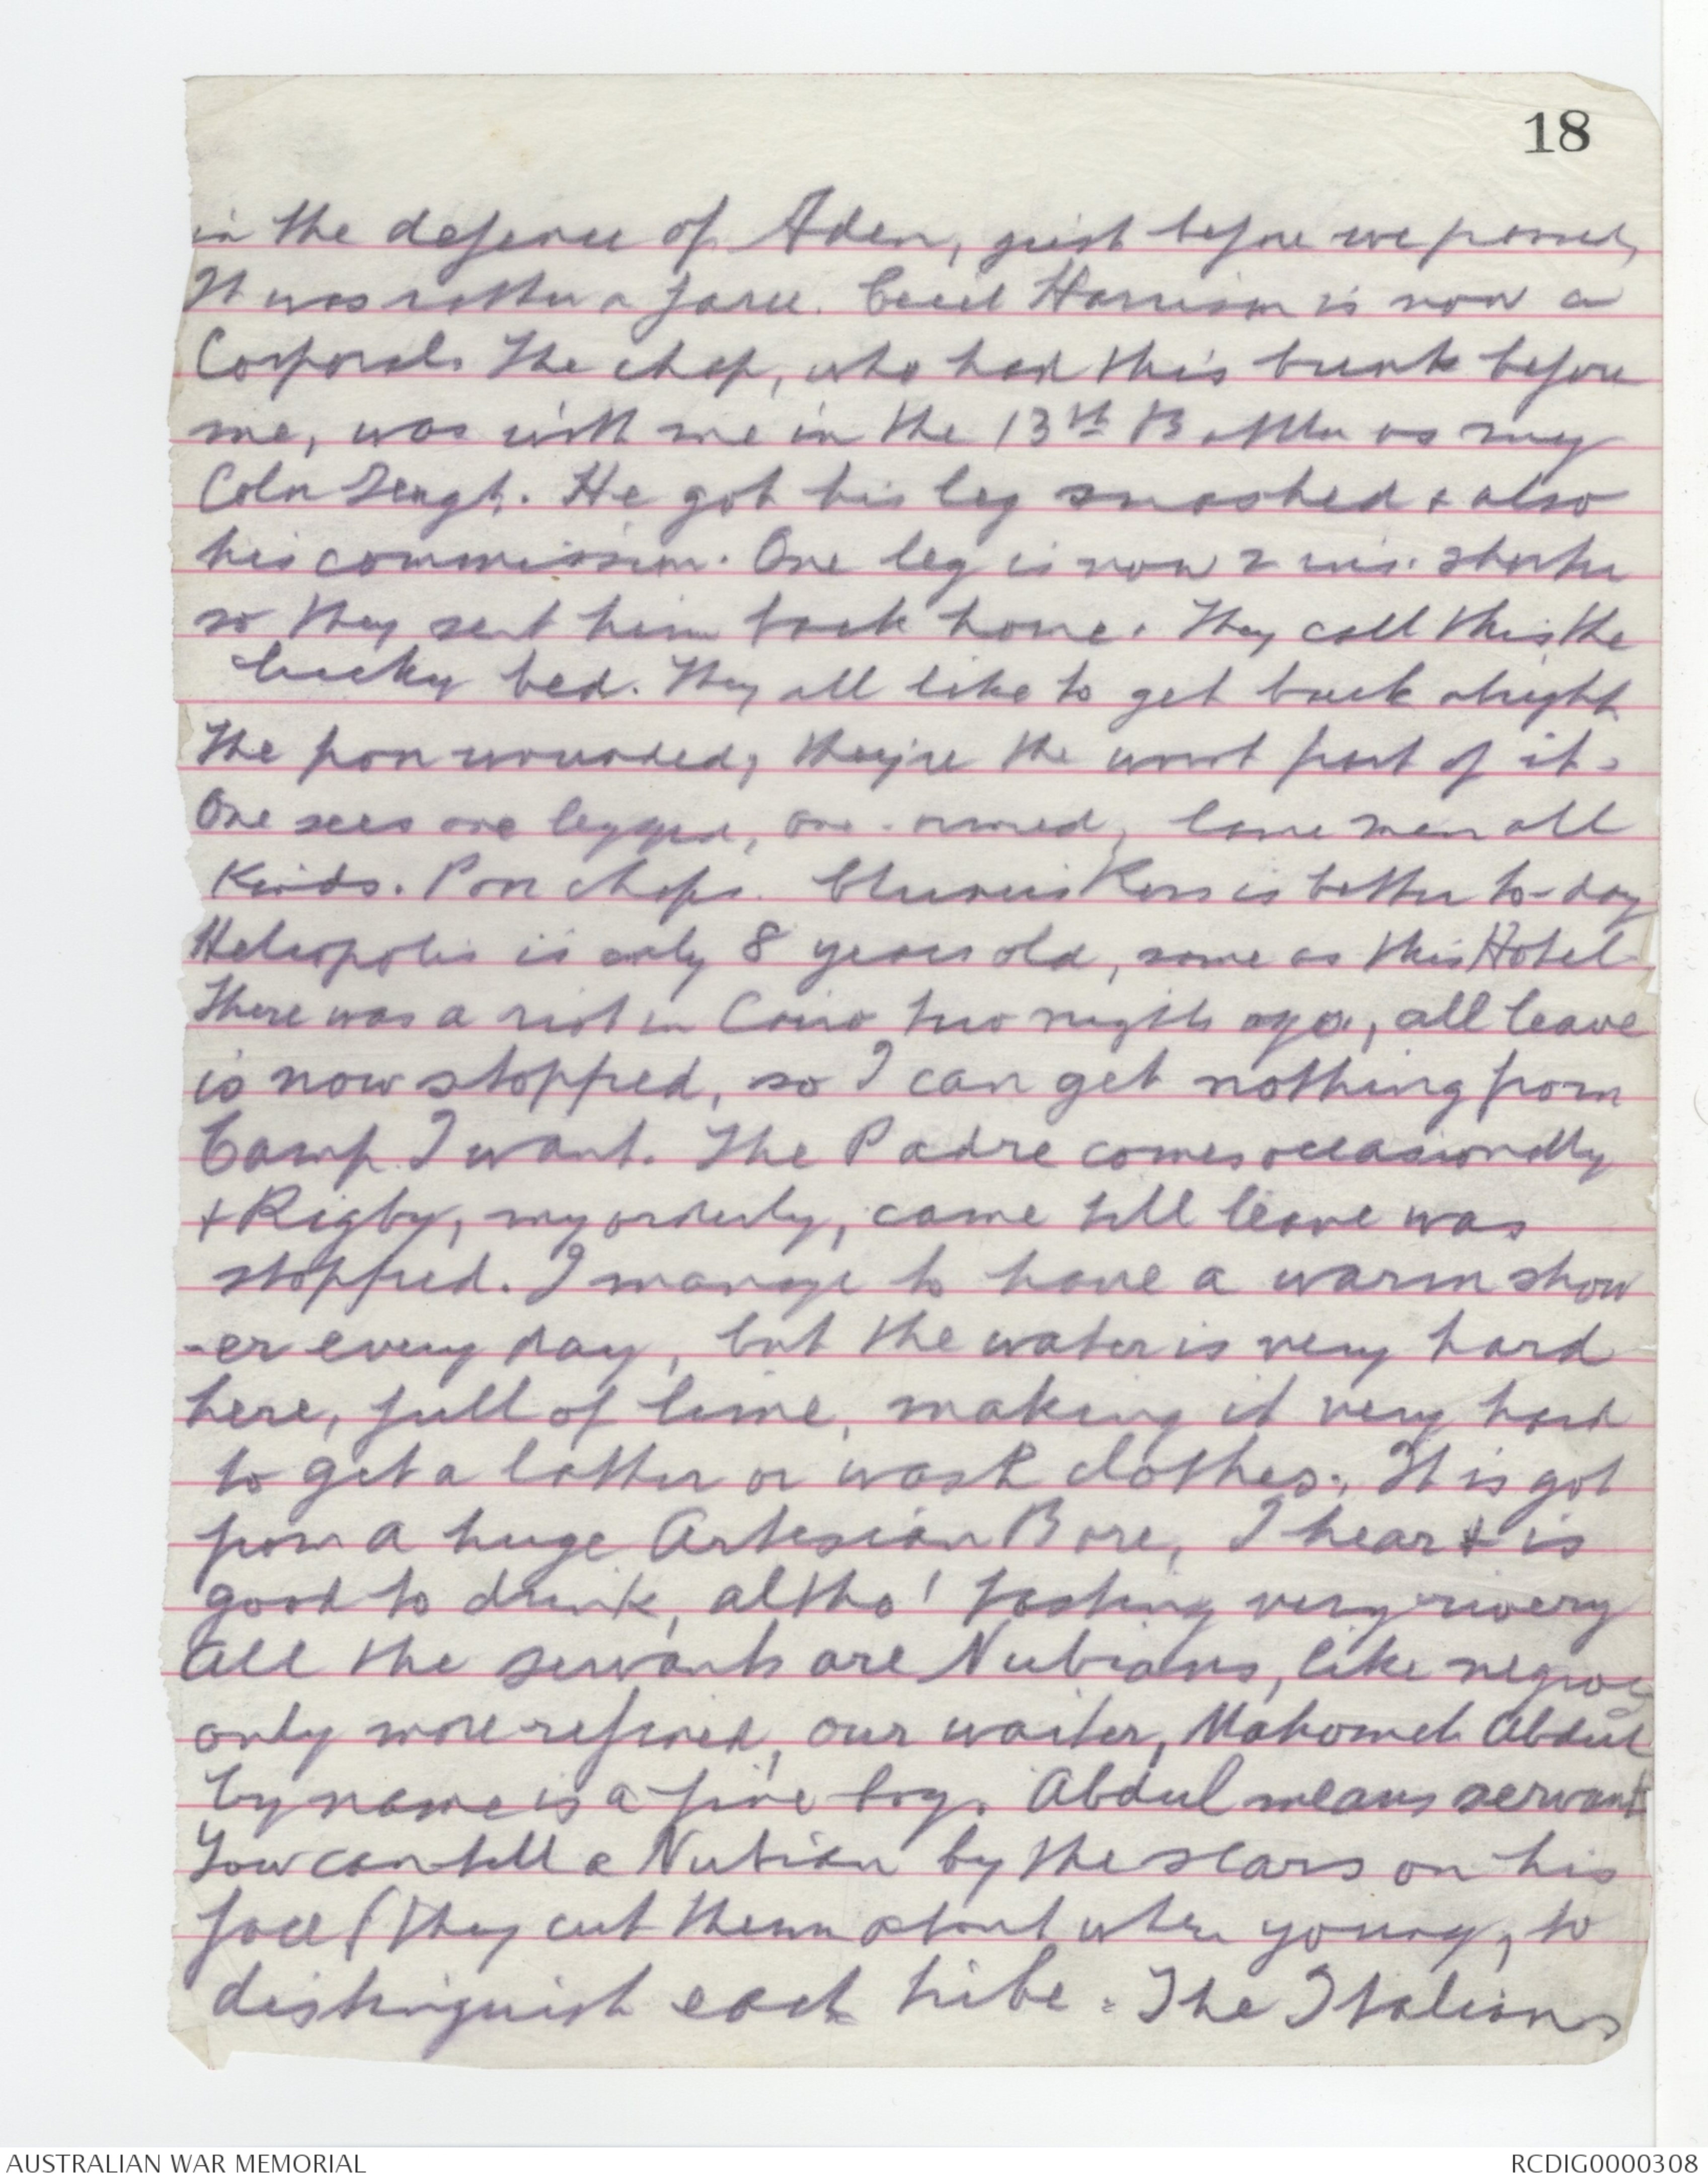 18
in the defence of Aden, just before we passed,
It was rather a farce. Cecil Harrison is now a
Corporal. The chap, who had this bunk before
me, was with me in the 13th Battln as my
Colr Sergt. He got his leg smashed & also
his commission. One leg is now 2 ins. shorter
so they sent him back home. They call this the
lucky bed. They all like to get back alright
The poor wounded, they're the worst part of it.
One sees one legged, one-armed, lame men all
kinds. Poor chaps. Ross is better to-day
Heliopolis is only 8 years old, same as this Hotel.
There was a riot in Cairo two nights ago, all leave
is now stopped, so I can get nothing from
Camp I want. The Padre comes occasionally
& Rigby, my orderly, came till leave was
stopped. I manage to have a warm show
-er every day, but the water is very hard
here, full of lime, making it very hard
to get a lather or wash clothes. It is got
from a huge Artesian Bore, I hear & is
good to drink, altho' tasting very rivery
All the servants are Nubians, like negroes
only more refined, our waiter, Mahomed Abdul
by name is a fine boy. Abdul means servant
You can tell a Nubian by the scars on his
face (They cut them about when young, to
distinguish each tribe. The Italians
AUSTRALIAN WAR MEMORIAL
RCDIG0000308